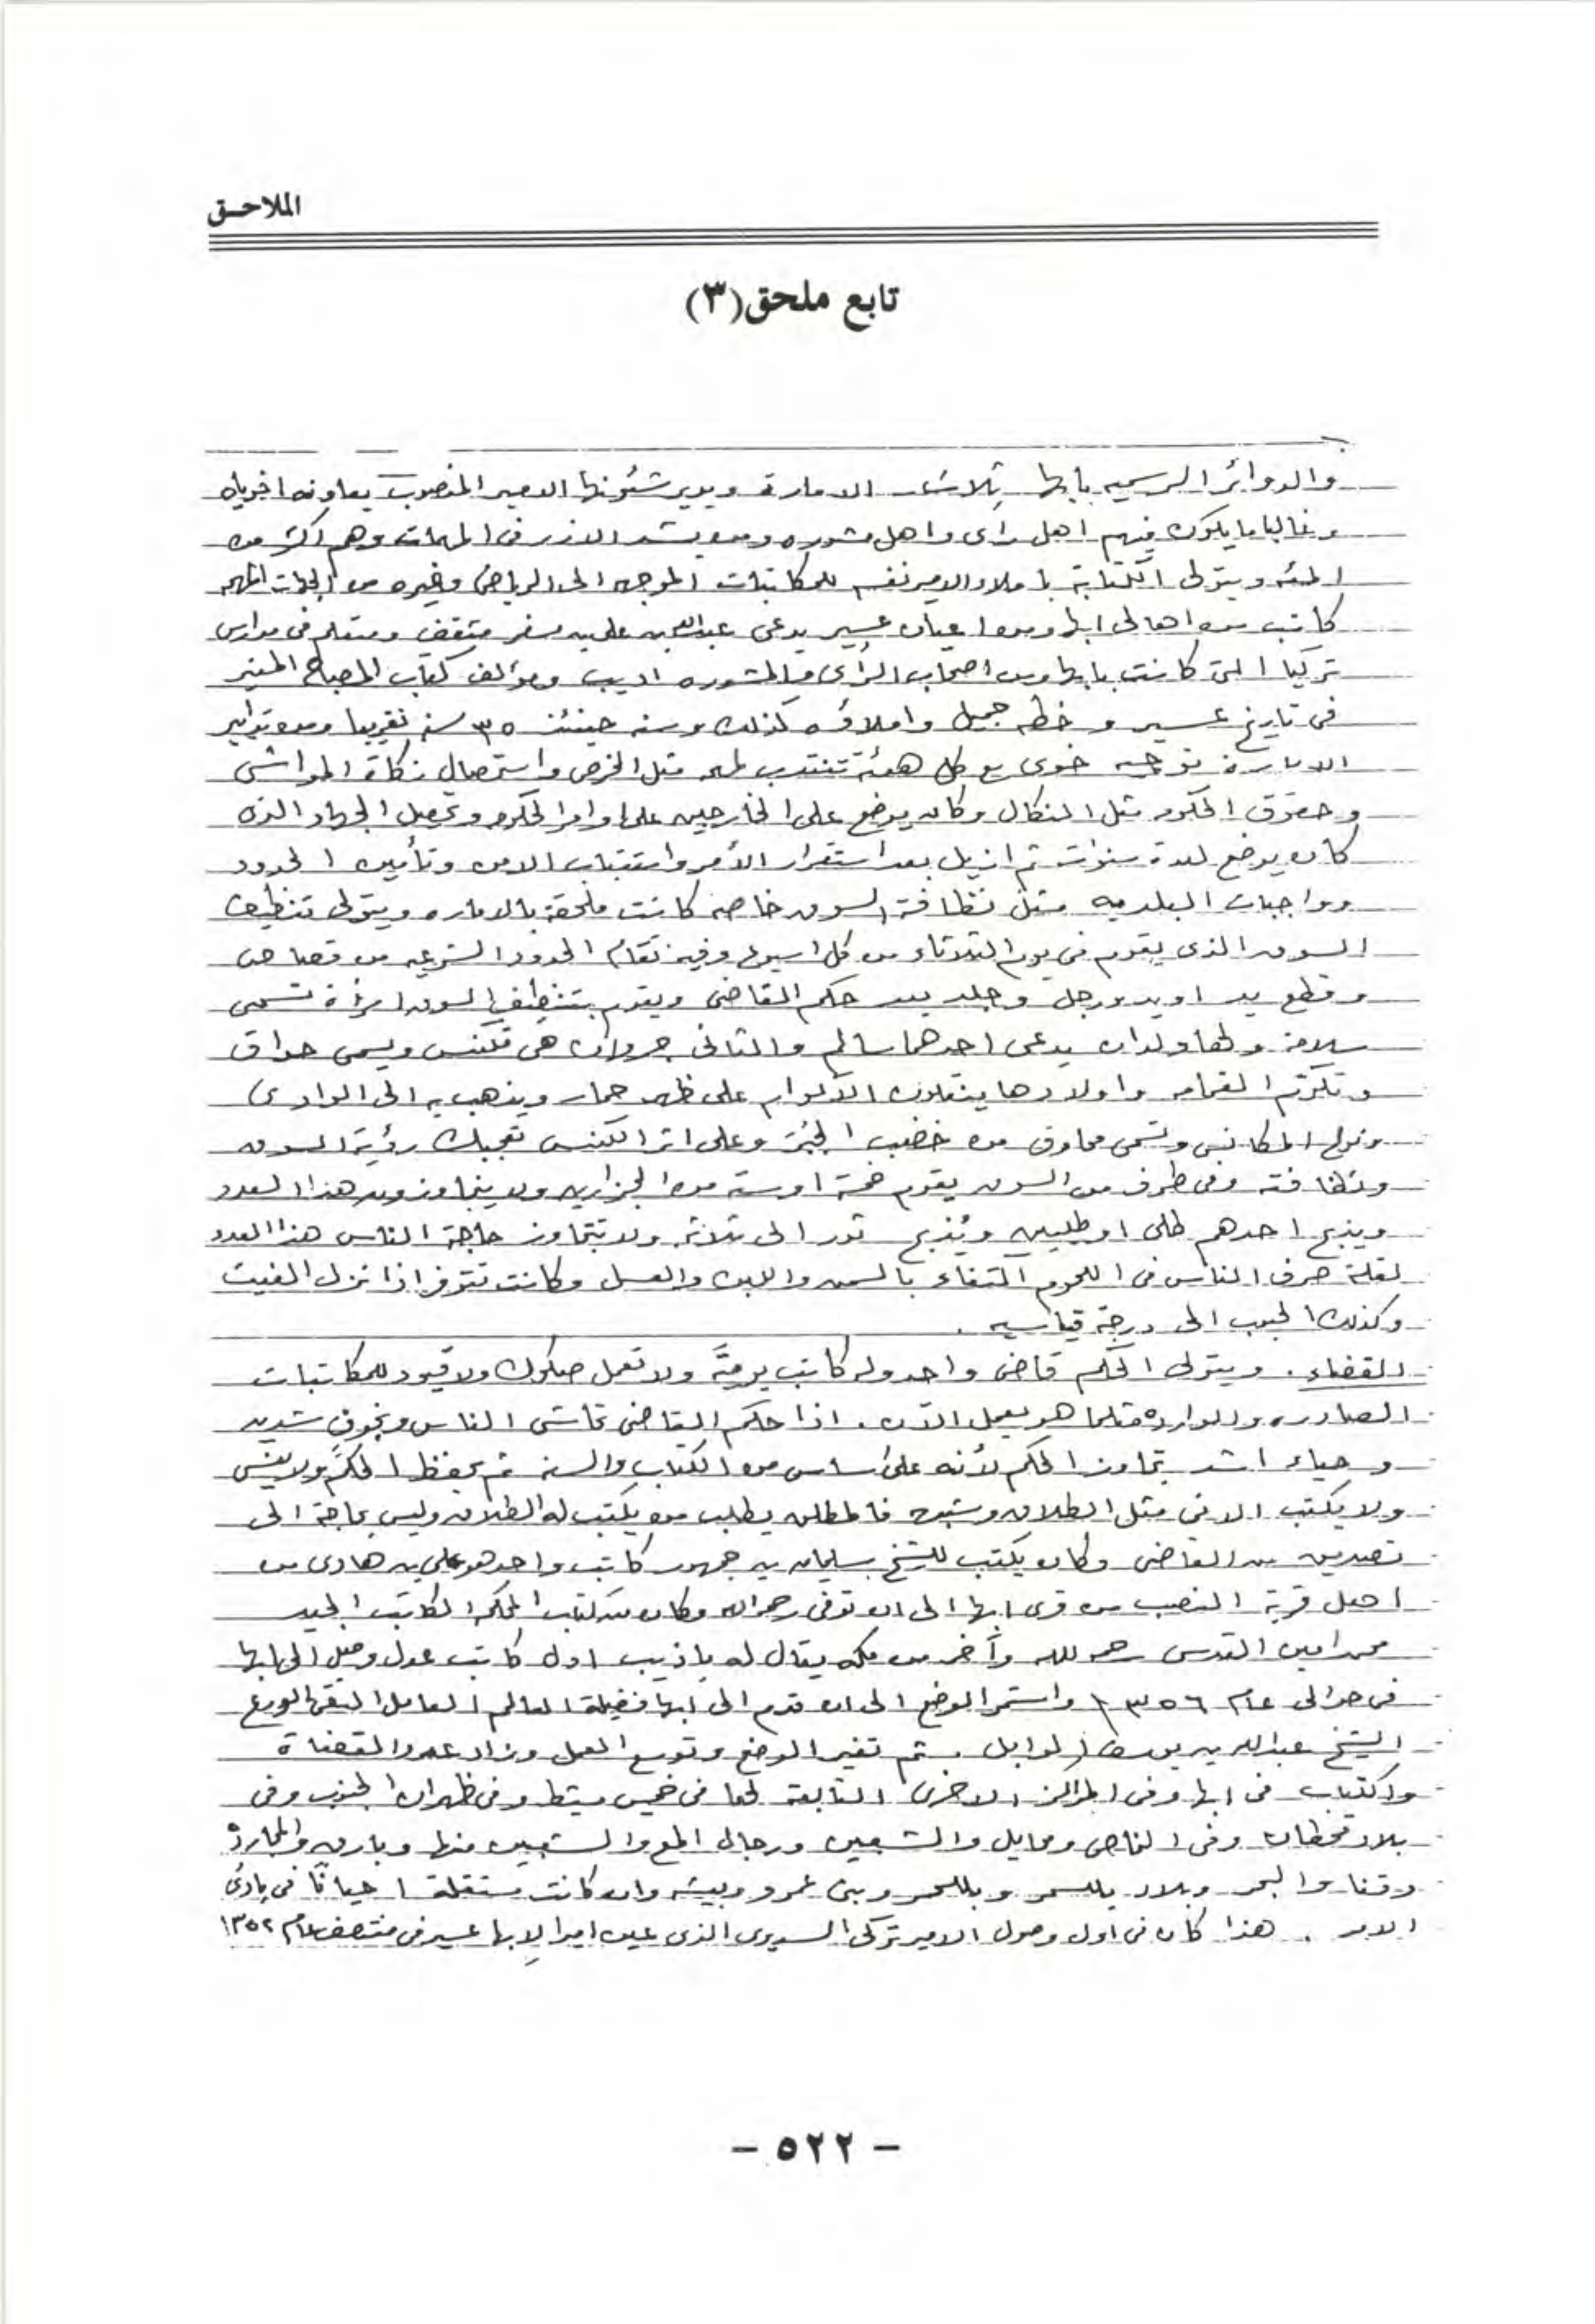 الملاحـق
تابع ملحق (٣)
والدوائر الرسميه بابها ثلاث الامارة ويدير شئونها الامير المنصوب يعاونه اخوياه
وغالبا ما يكون فيهم اهل راى واهل مشوره ومن يشد الازر فى المهمات وهم اكثر من
المئه ويتولى الكتابة باملاء الامير نفسه للمكاتبات الموجهه الى الرياض وغيره من الجهات المهمه
كاتب من اهالى ابها ومن اعيان عسير يدعى عبدالله بن على بن مسفر مثقف ومتعلم فى مدارس
تركيا التى كانت بابها ومن اصحاب الرأى والمشوره اديب ومؤلف كتاب المصباح المنير
فى تاريخ عسير وخطه جميل واملاؤه كذلك وسنه حينئذ ٣٥ سنه تقريبا ومن تدابير
الامارة توجيه خوى مع كل هيئة تنتدب لمهمه مثل الخرص واستحصال زكاة المواشى
وحقوق الحكومه مثل النكال وكان يوضع على الخارجين على اوامر الحكومه وتحصيل الجهاد الذى
كان يوضع لعدة سنوات ثم ازيل بعد استقرار الأمر واستتباب الامن وتأمين الحدود
وواجبات البلديه مثل نظافة السوق خاصه كانت ملحقة بالاماره ويتولى تنظيف
السوق الذى يقوم فى يوم الثلاثاء من كل اسبوع وفيه تقام الحدود الشرعيه من قصاص
وقطع يد او يد ورجل وجلد بعد حكم القاضى ويقوم بتنظيف السوق امرأة تسمى
سلامه ولها ولدان يدعى احدهما سالم والثانى جروان هى تكنس ويسمى حواق
وتكوّم القمامه واولادها ينقلون الأكوام على ظهر حمار ويذهب به الى الوادى
ونوع المكانس وتسمى محاوق من خضب وعلى اثر الكنس تعجبك رؤية السوق
ونظافته وفى طرف من السوق يقوم خمسة او سته من الجزارين ولا يتجاوزون هذا العدد
ويذبح احدهم طلى او طليين ويُذبح ثور الى ثلاثه ولا تتجاوز حاجة الناس هذا العدد
لقلة صرف الناس فى اللحوم اكتفاء بالسمن واللبن والعسل وكانت تتوفر اذا نزل الغيث
وكذلك الحبوب الى درجة قياسيه .
القضاء . ويتولى الحكم قاضى واحد وله كاتب ولا تعمل صكوك ولا قيود للمكاتبات
الصادره والوارده مثلما هو يعمل الآن . اذا حكم القاضى تحاشى الناس وبخوف شديد
وحياء اشد تجاوز الحكم لأنه على أساس من الكتاب والسنه ثم يحفظ الحكم ولا ينسى
ولا يكتب الا فى مثل الطلاق وشبهه فالمطلق يطلب من يكتب له الطلاق وليس بحاجة الى
تصديق من القاضى وكان يكتب للشيخ سليمان بن جمهور كاتب واحد هو على بن هادى من
اهل قرية النصب من قرى ابها الى ان توفى رحمه الله وكان من كتاب المحكمه الكاتب الجيد
محمد امين القدسى رحمه الله وآخر من مكه يقال له باذيب اول كاتب عدل وصل الى ابها
فى حوالى عام ١٣٥٦ واستمر الوضع الى ان قدم الى ابها فضيلة العالم العامل التقى الورع
الشيخ عبدالله بن يوسف الوابل . ثم تغير الوضع وتوسع العمل وزاد عدد القضاة
والكتاب فى ابها وفى المراكز الاخرى التابعة لها فى خميس مشيط وفى ظهران الجنوب وفى
بلاد قحطان وفى النماص ومحايل والشعبين ورجال المع والشعبين منها وبارق والمجاردة
وقنا والبحر وبلاد بللسمر وبللحمر وبنى عمرو وبيشه وان كانت مستقلة احيانًا فى بادئ
الامر . هذا كان فى اول وصول الامير تركى السديرى الذى عين اميرا لابها عسير فى منتصف عام ١٣٥٢
- ٥٢٢ -